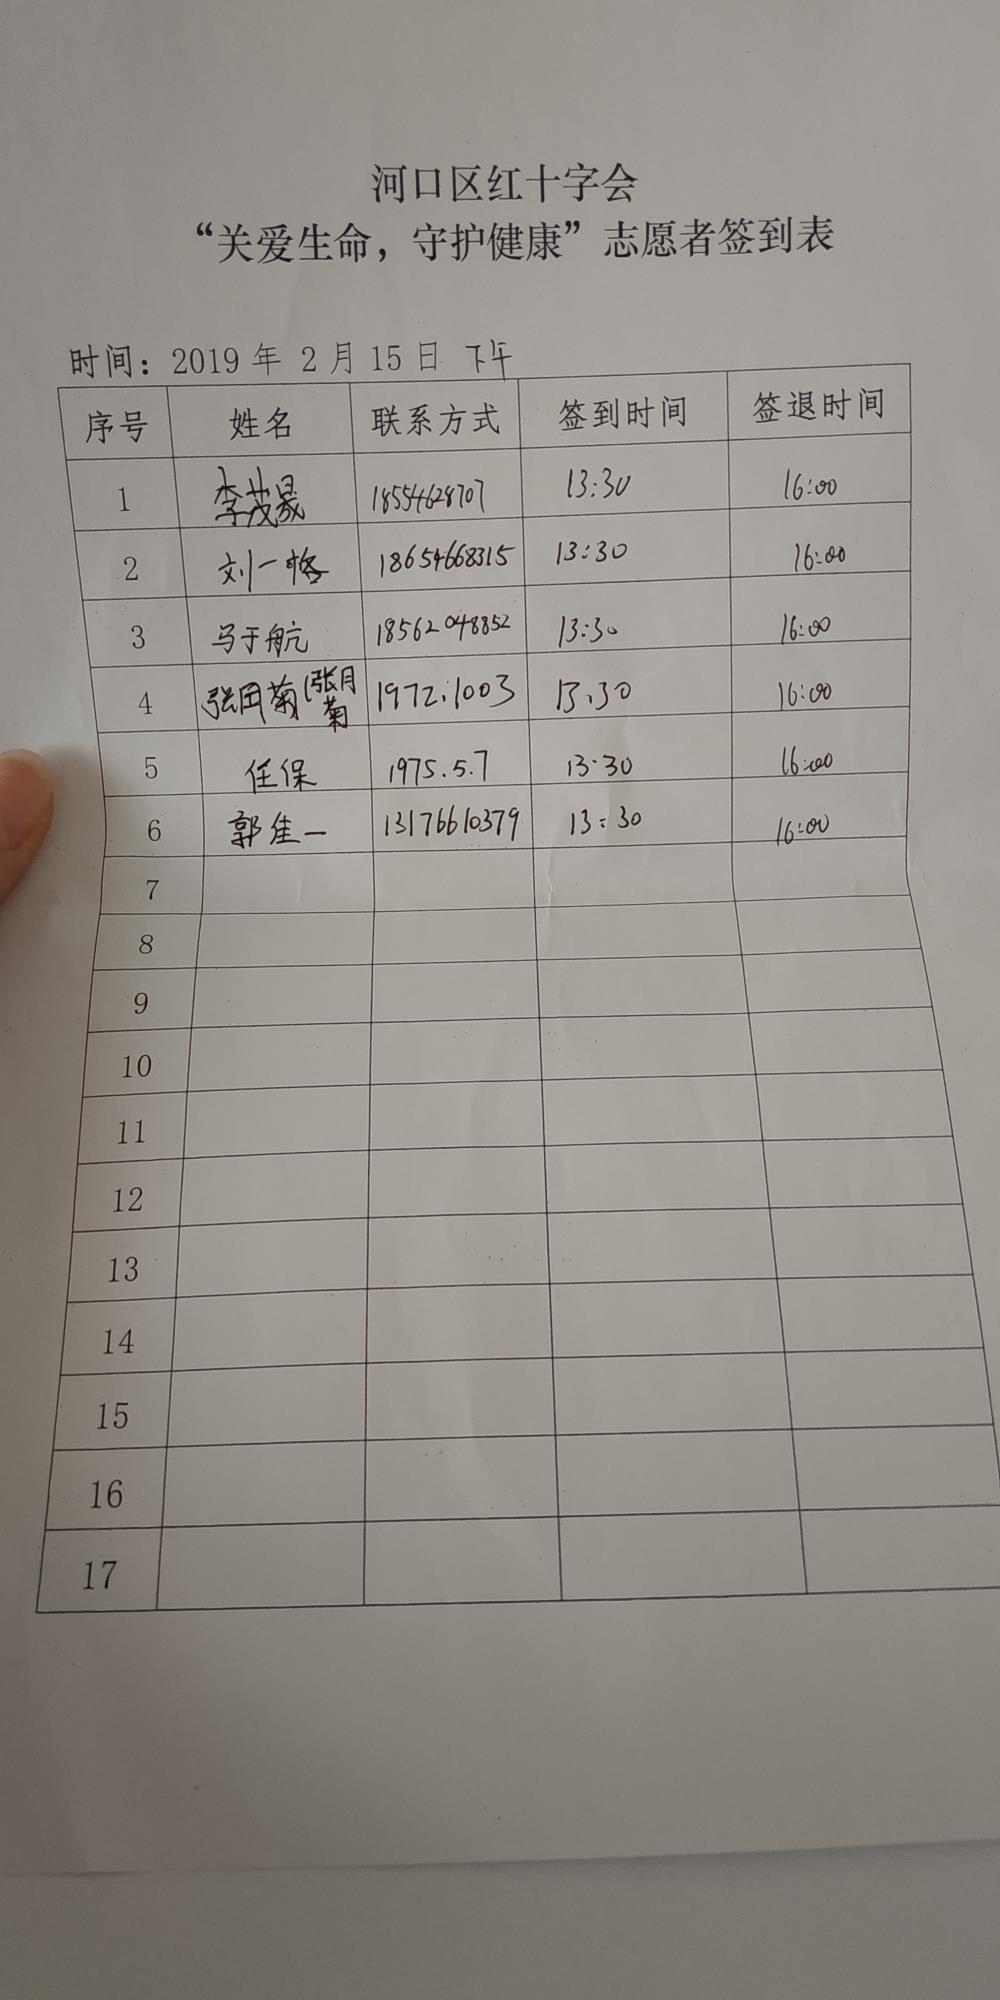 河口区红十字会
“关爱生命，守护健康”志愿者签到表
时间：2019年 2月 15日 下午
序号 姓名 联系方式 签到时间 签退时间
1 李茂晟 18554628707 13:30 16:00
2 刘一格 18654668315 13:30 16:00
3 马于航 18562048852 13:30 16:00
4 张冈菊(张月菊 1972.1003 13.30 16:00
5 任保 1975.5.7 13:30 16:00
6 郭佳一 13176610379 13:30 16:00
7
8
9
10
11
12
13
14
15
16
17